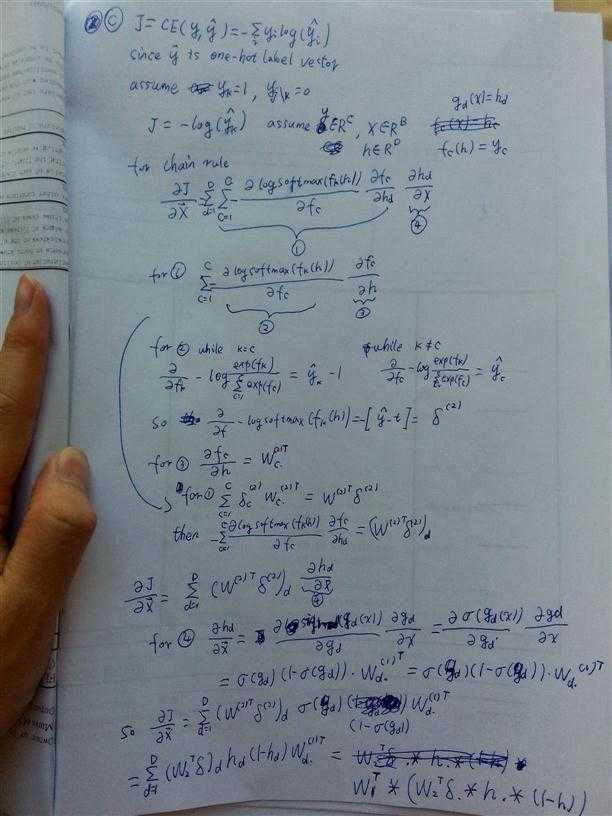 (C) J = CE(y, ŷ) = -Σᵢ yᵢ log(ŷᵢ)
since ȳ is one-hot label vector
assume yₖ=1, y_{j\k}=0
g_d(x)=h_d
J = -log(ŷₖ) assume y∈R^C, X∈R^B
h∈R^D f_c(h)=y_c
for chain rule
∂J/∂X̄ = Σ_{d=1}^D Σ_{c=1}^C - ∂logsoftmax(fₖ(h))/∂f_c ∂f_c/∂h_d ∂h_d/∂X
① ④
for ① Σ_{c=1}^C ∂logsoftmax(fₖ(h))/∂f_c ∂f_c/∂h
② ③
for ② while k=c while k≠c
∂/∂fₖ -log exp(fₖ)/Σ_{c=1}^C exp(f_c) = ŷₖ - 1 ∂/∂f_c -log exp(fₖ)/Σ exp(f_c) = ŷ_c
so ∂/∂f - logsoftmax(fₖ(h)) = -[ŷ-t] = δ^{(2)}
for ③ ∂f_c/∂h = W_{c.}^{(2)T}
for ① Σ_{c=1}^C δ_c^{(2)} W_{c.}^{(2)T} = W^{(2)T} δ^{(2)}
then -Σ_{c=1}^C ∂logsoftmax(fₖ(h))/∂f_c ∂f_c/∂h_d = (W^{(2)T} δ^{(2)})_d
∂J/∂X̄ = Σ_{d=1}^D (W^{(2)T} δ^{(2)})_d ∂h_d/∂X̄
④
for ④ ∂h_d/∂X̄ = ∂(g_d(x))/∂g_d ∂g_d/∂x = ∂σ(g_d(x))/∂g_d ∂g_d/∂x
= σ(g_d)(1-σ(g_d))·W_{d.}^{(1)T} = σ(g_d)(1-σ(g_d))·W_{d.}^{(1)T}
so ∂J/∂X̄ = Σ_{d=1}^D (W^{(2)T} δ^{(2)})_d σ(g_d) (1-σ(g_d)) W_{d.}^{(1)T}
= Σ_{d=1}^D (W₂^T δ)_d h_d (1-h_d) W_{d.}^{(1)T} =
W₁^T * (W₂^T δ .* h .* (1-h))